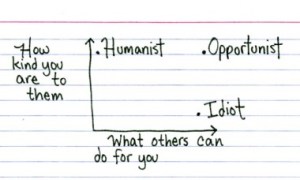 How
kind you
are to
them
Humanist
Opportunist
Idiot
What others can
do for you